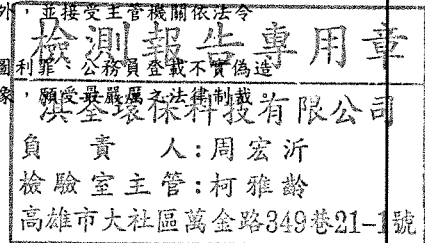 外，並接受主管機關依法令
檢測報告專用章
圖利罪、公務員登載不實偽造
象，願受最嚴厲之法律制裁。
淇荃環保科技有限公司
負責人：周宏沂
檢驗室主管：柯雅齡
高雄市大社區萬金路349巷21-1號